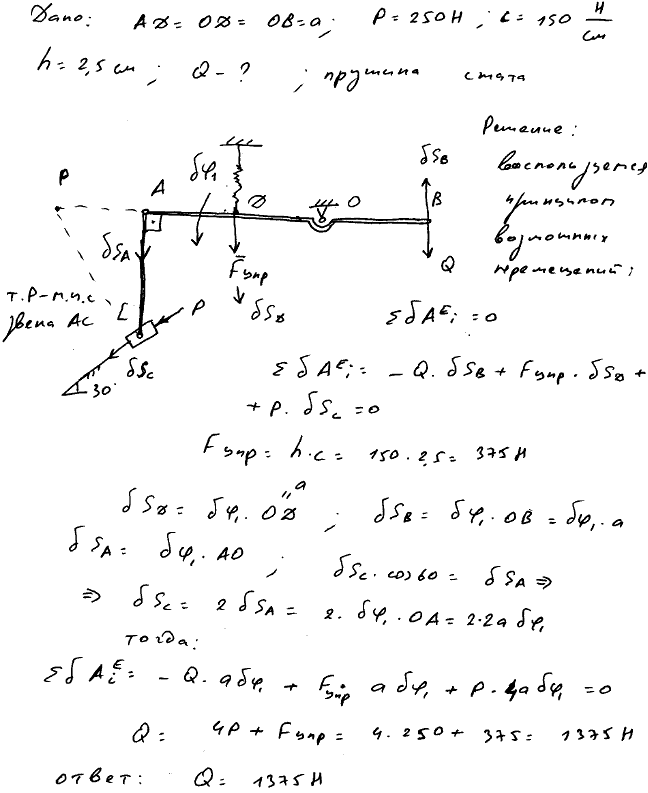 Дано: AD = OD = OB = a; P = 250 Н; c = 150 Н/см
h = 2,5 см; Q - ?; пружина сжата
Решение:
воспользуемся
принципом
возможных
перемещений;
P
A
δφ₁
D
O
δS_B
B
Q
δS_A
F̄упр
δS_D
т. P – м.ц.с
звена AC
C
P
δS_C
30°
ΣδAᴱᵢ = 0
ΣδAᴱᵢ = - Q · δS_B + Fупр · δS_D +
+ P · δS_C = 0
Fупр = h · c = 150 · 2,5 = 375 Н
a
δS_D = δφ₁ · OD ; δS_B = δφ₁ · OB = δφ₁ · a
δS_A = δφ₁ · AO ; δS_C · cos 60 = δS_A ⇒
⇒ δS_C = 2 δS_A = 2 · δφ₁ · OA = 2 · 2a δφ₁
тогда:
ΣδAᵢᴱ = - Q · aδφ₁ + Fупр · aδφ₁ + P · 4aδφ₁ = 0
Q = 4P + Fупр = 4 · 250 + 375 = 1375 Н
ответ: Q = 1375 Н